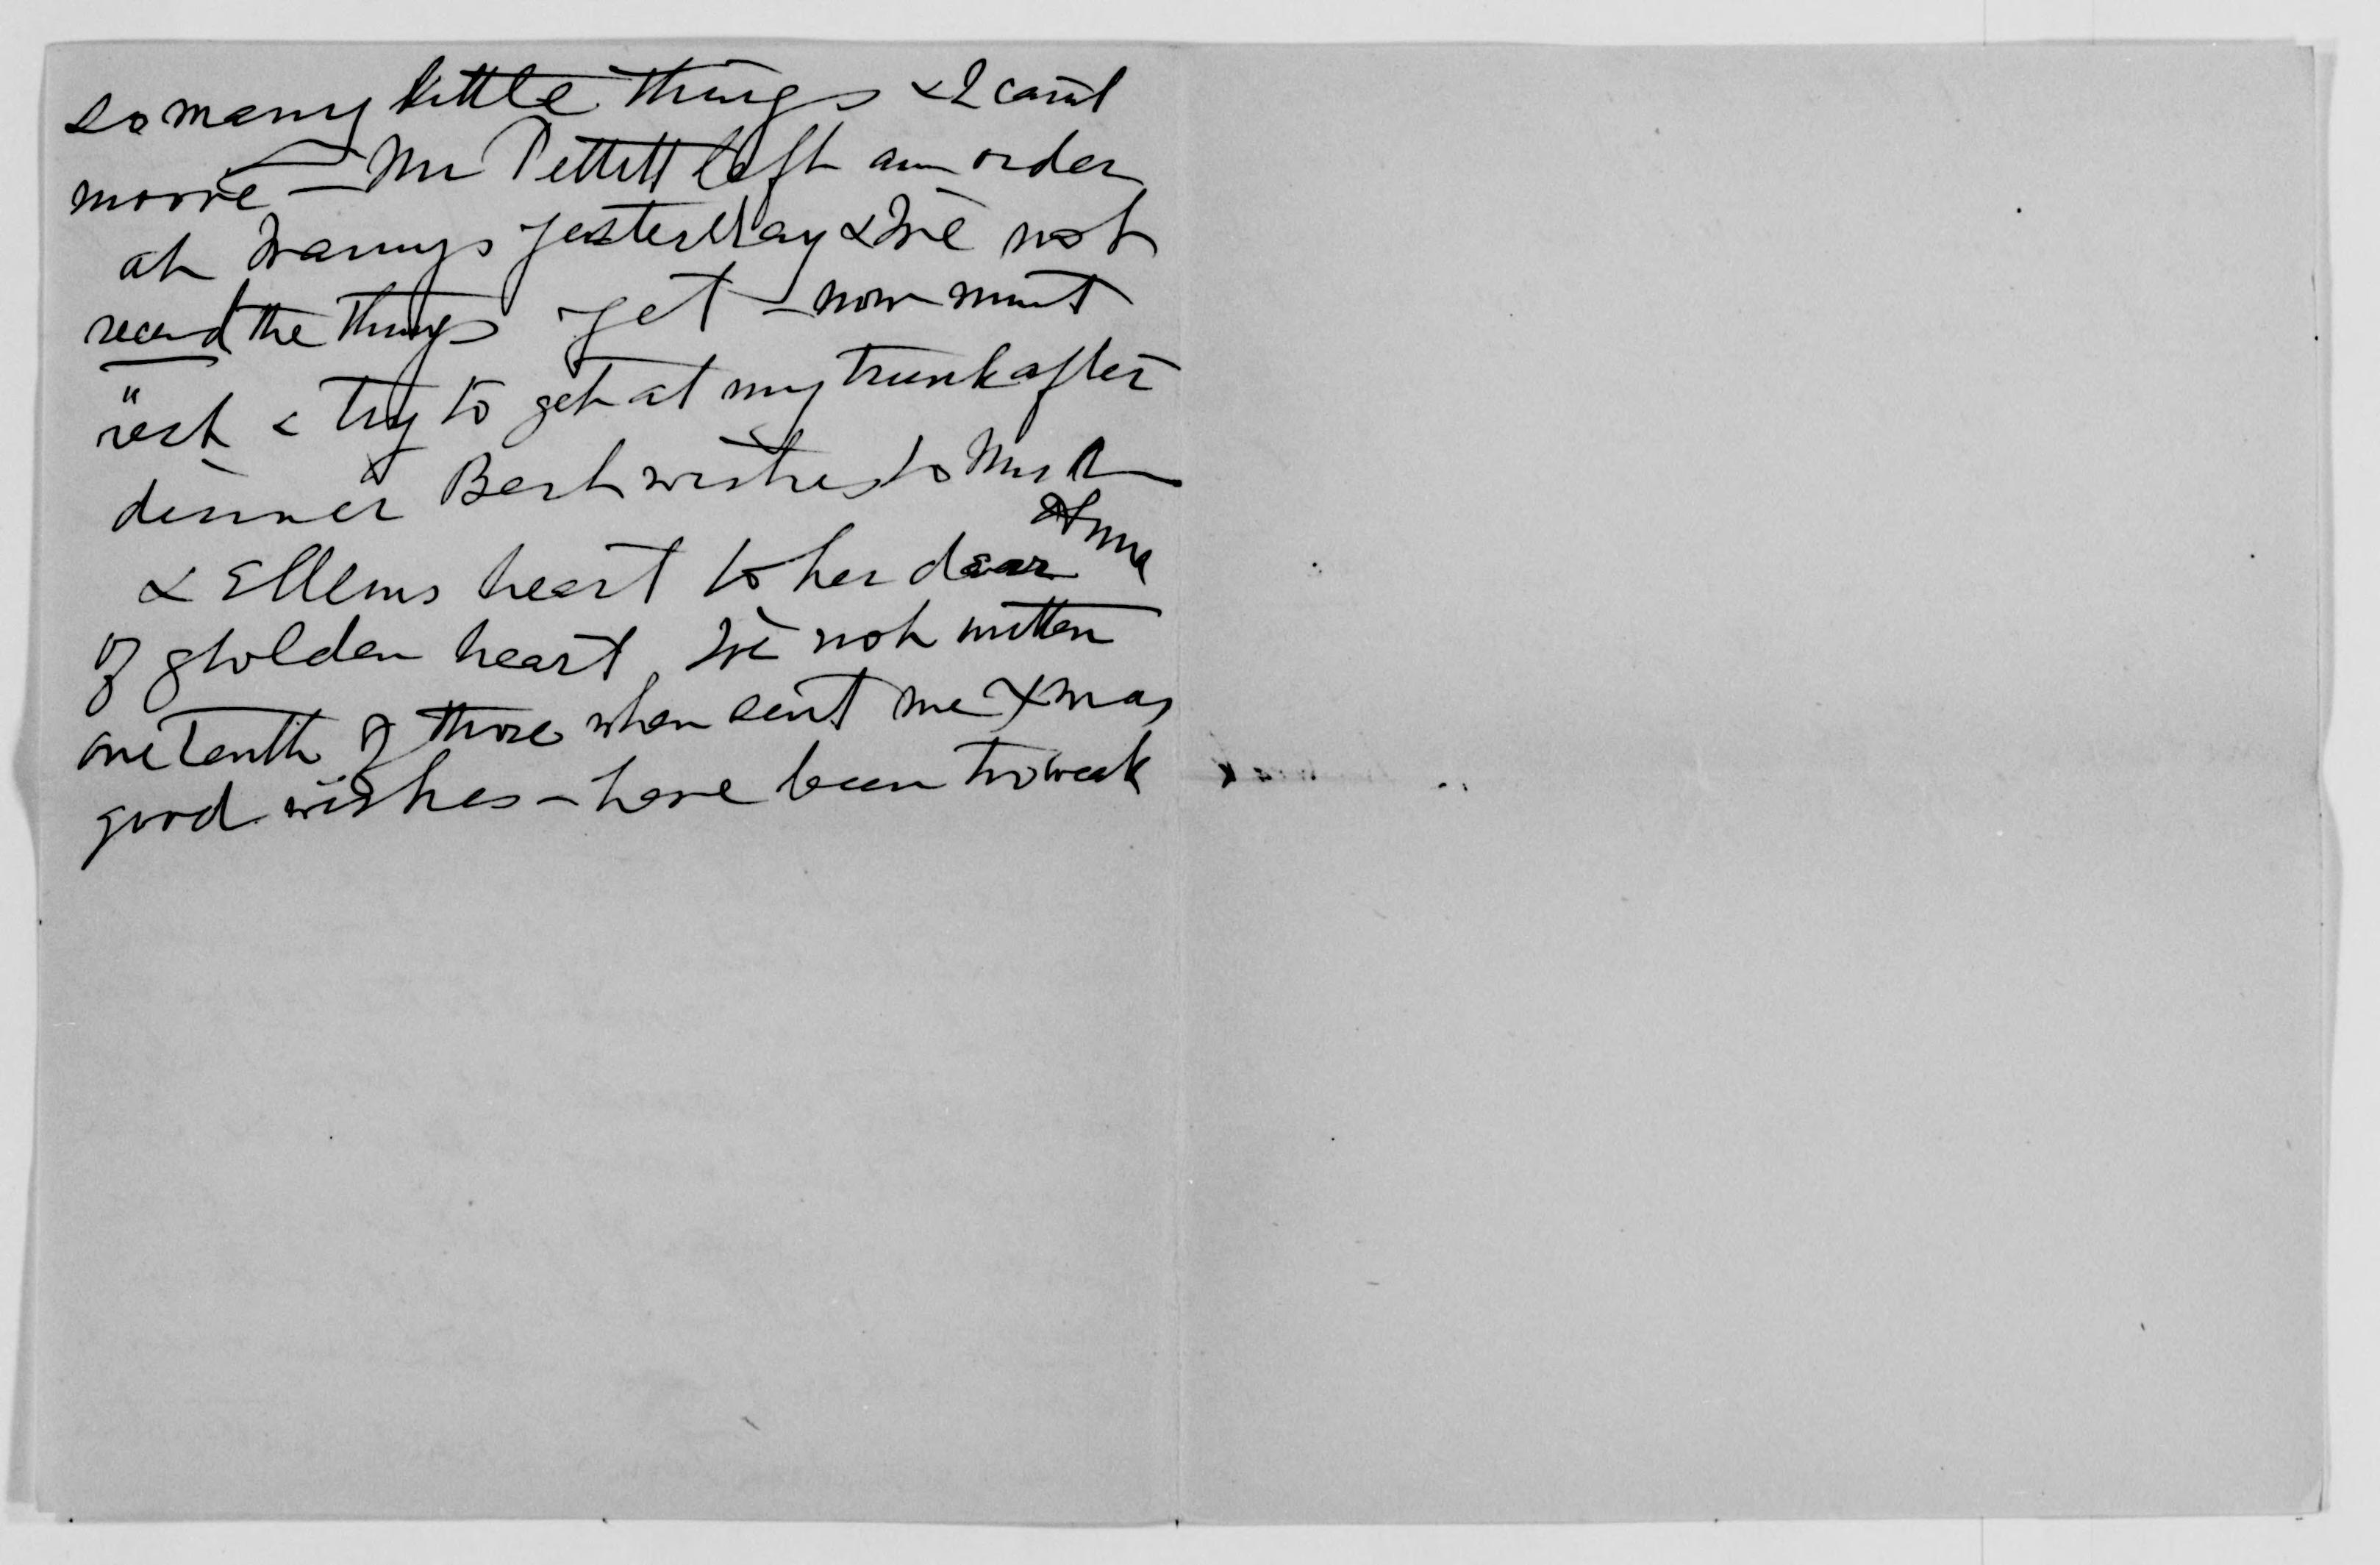 so many little things & I can't
move — Mr Pettitt left an order
at Grannys yesterday & I've not
recend the things yet — now must
rest & try to get at my trunk after
dinner Best wishes to Mrs
& Ellens heart to her dear
of gholden heart, I've not written
one tenth of those when sent me Xmas
good wishes — have been too weak